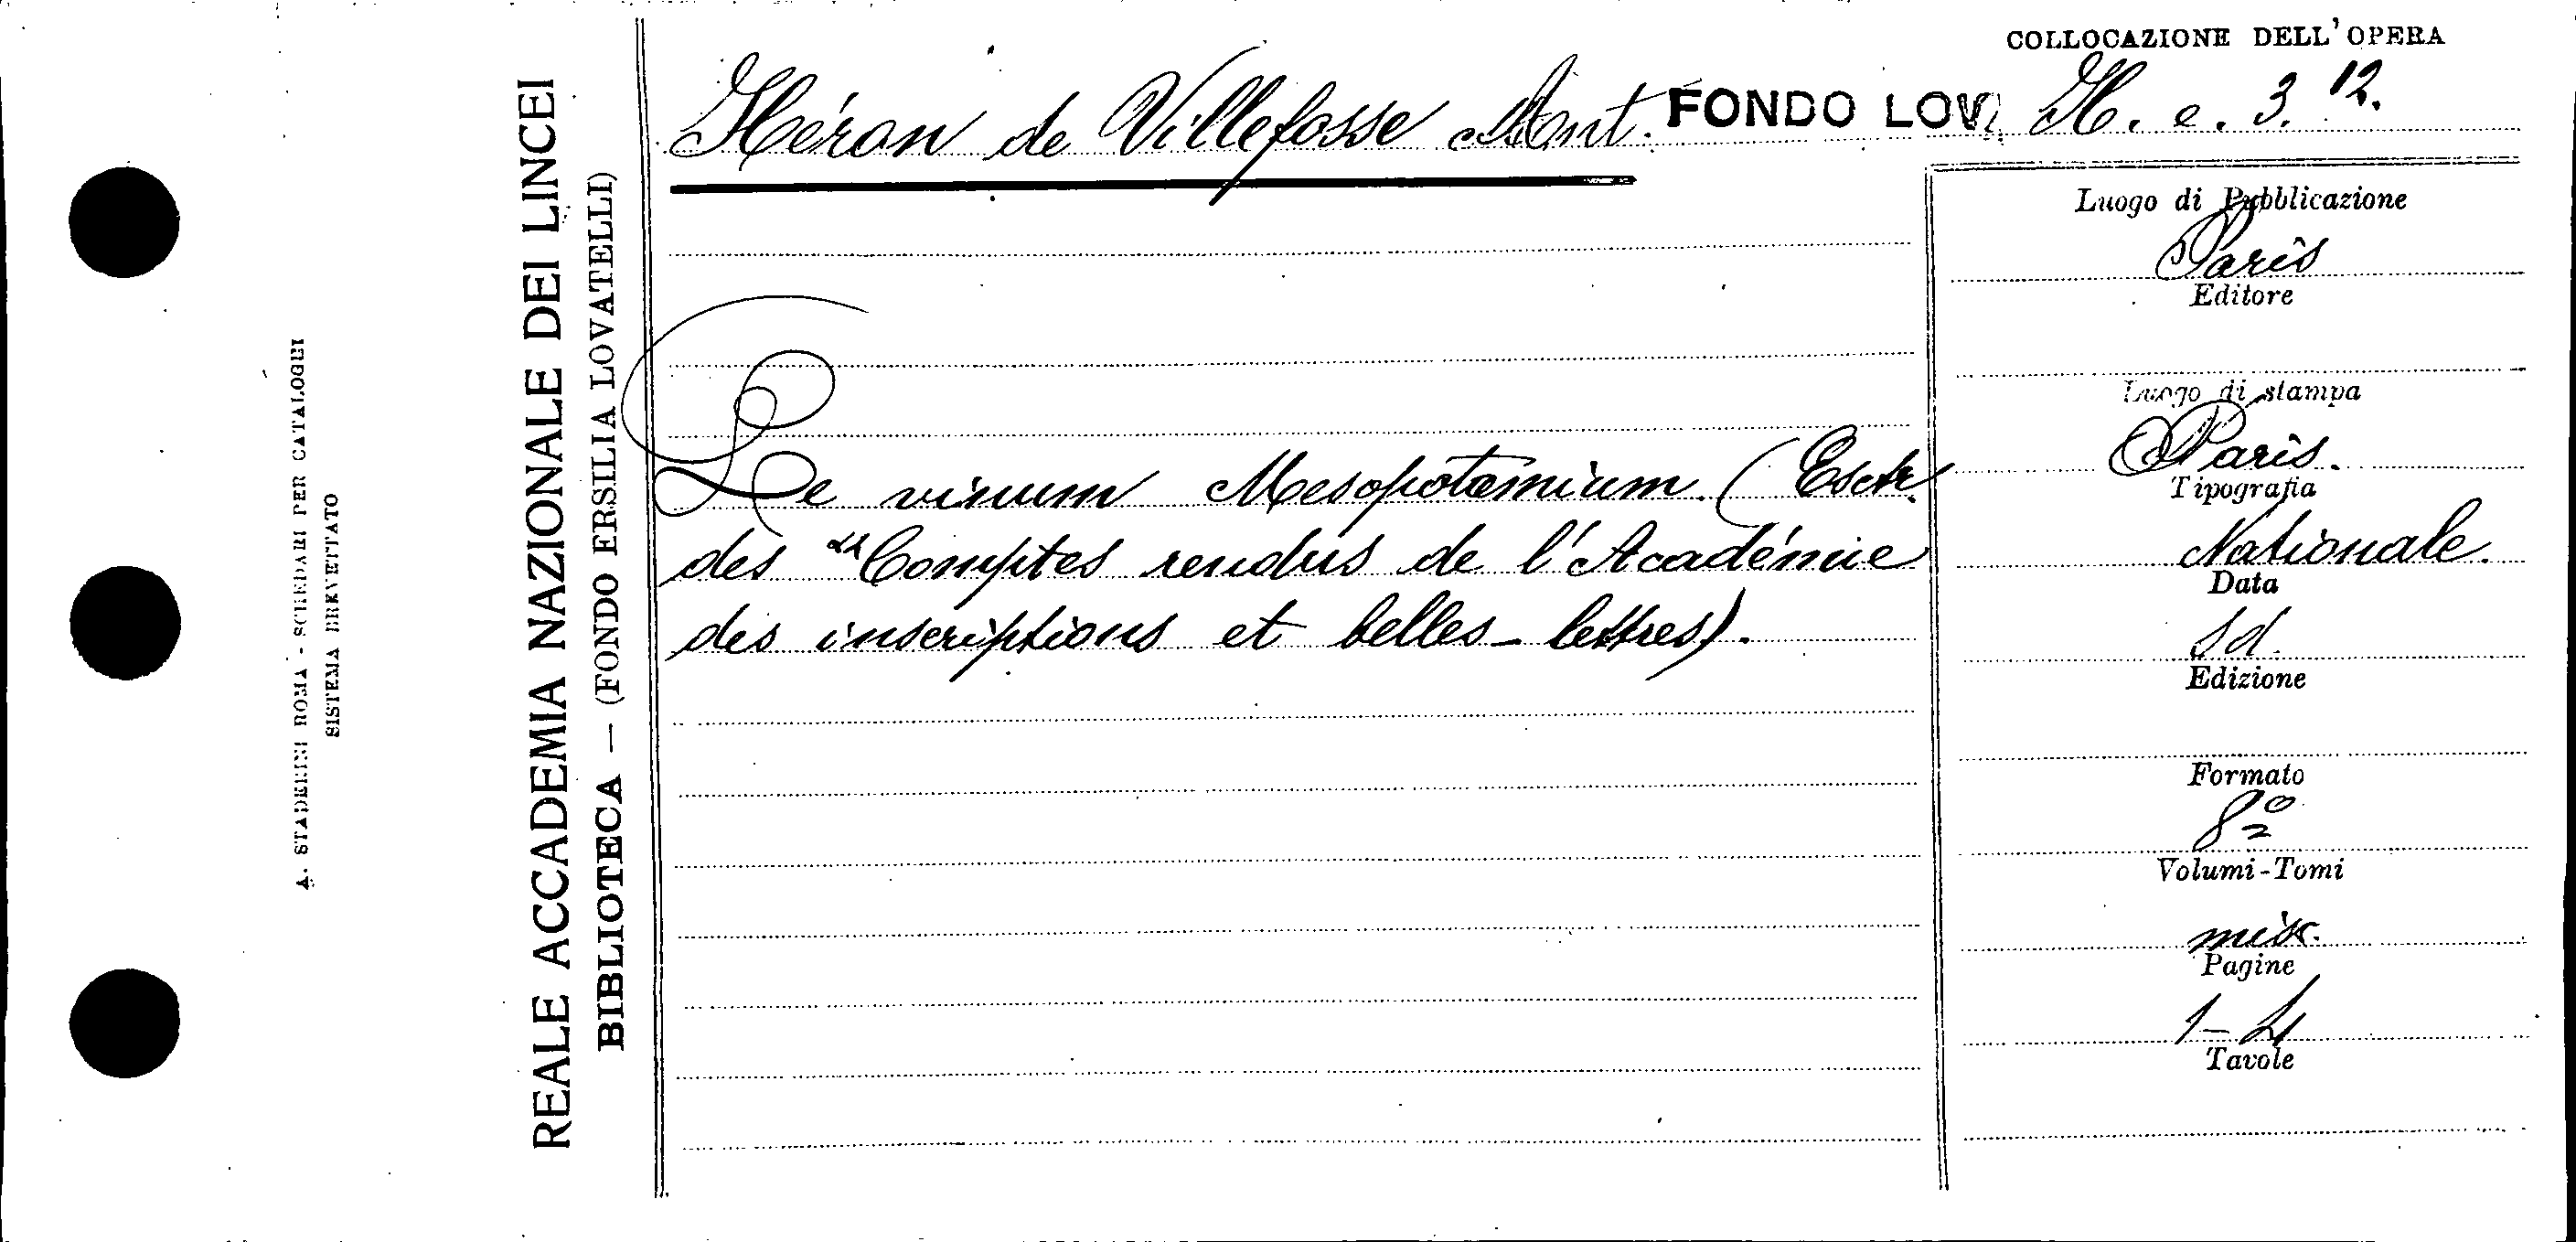 COLLOCAZIONE DELL'OPERA
Héron de Villefosse Ant. FONDO LOV. H. e. 3. 12.
REALE ACCADEMIA NAZIONALE DEI LINCEI
BIBLIOTECA — (FONDO ERSILIA LOVATELLI)
A. STADERINI ROMA - SCHEDARI PER CATALOGHI
SISTEMA BREVETTATO
Le vinum Mesopotamium. (Extr.
des "Comptes rendus de l'Académie
des inscriptions et belles-lettres).
Luogo di Pubblicazione
Paris
Editore
Luogo di stampa
Paris.
Tipografia
Nationale.
Data
s d.
Edizione
Formato
8º
Volumi-Tomi
misc.
Pagine
1-4
Tavole